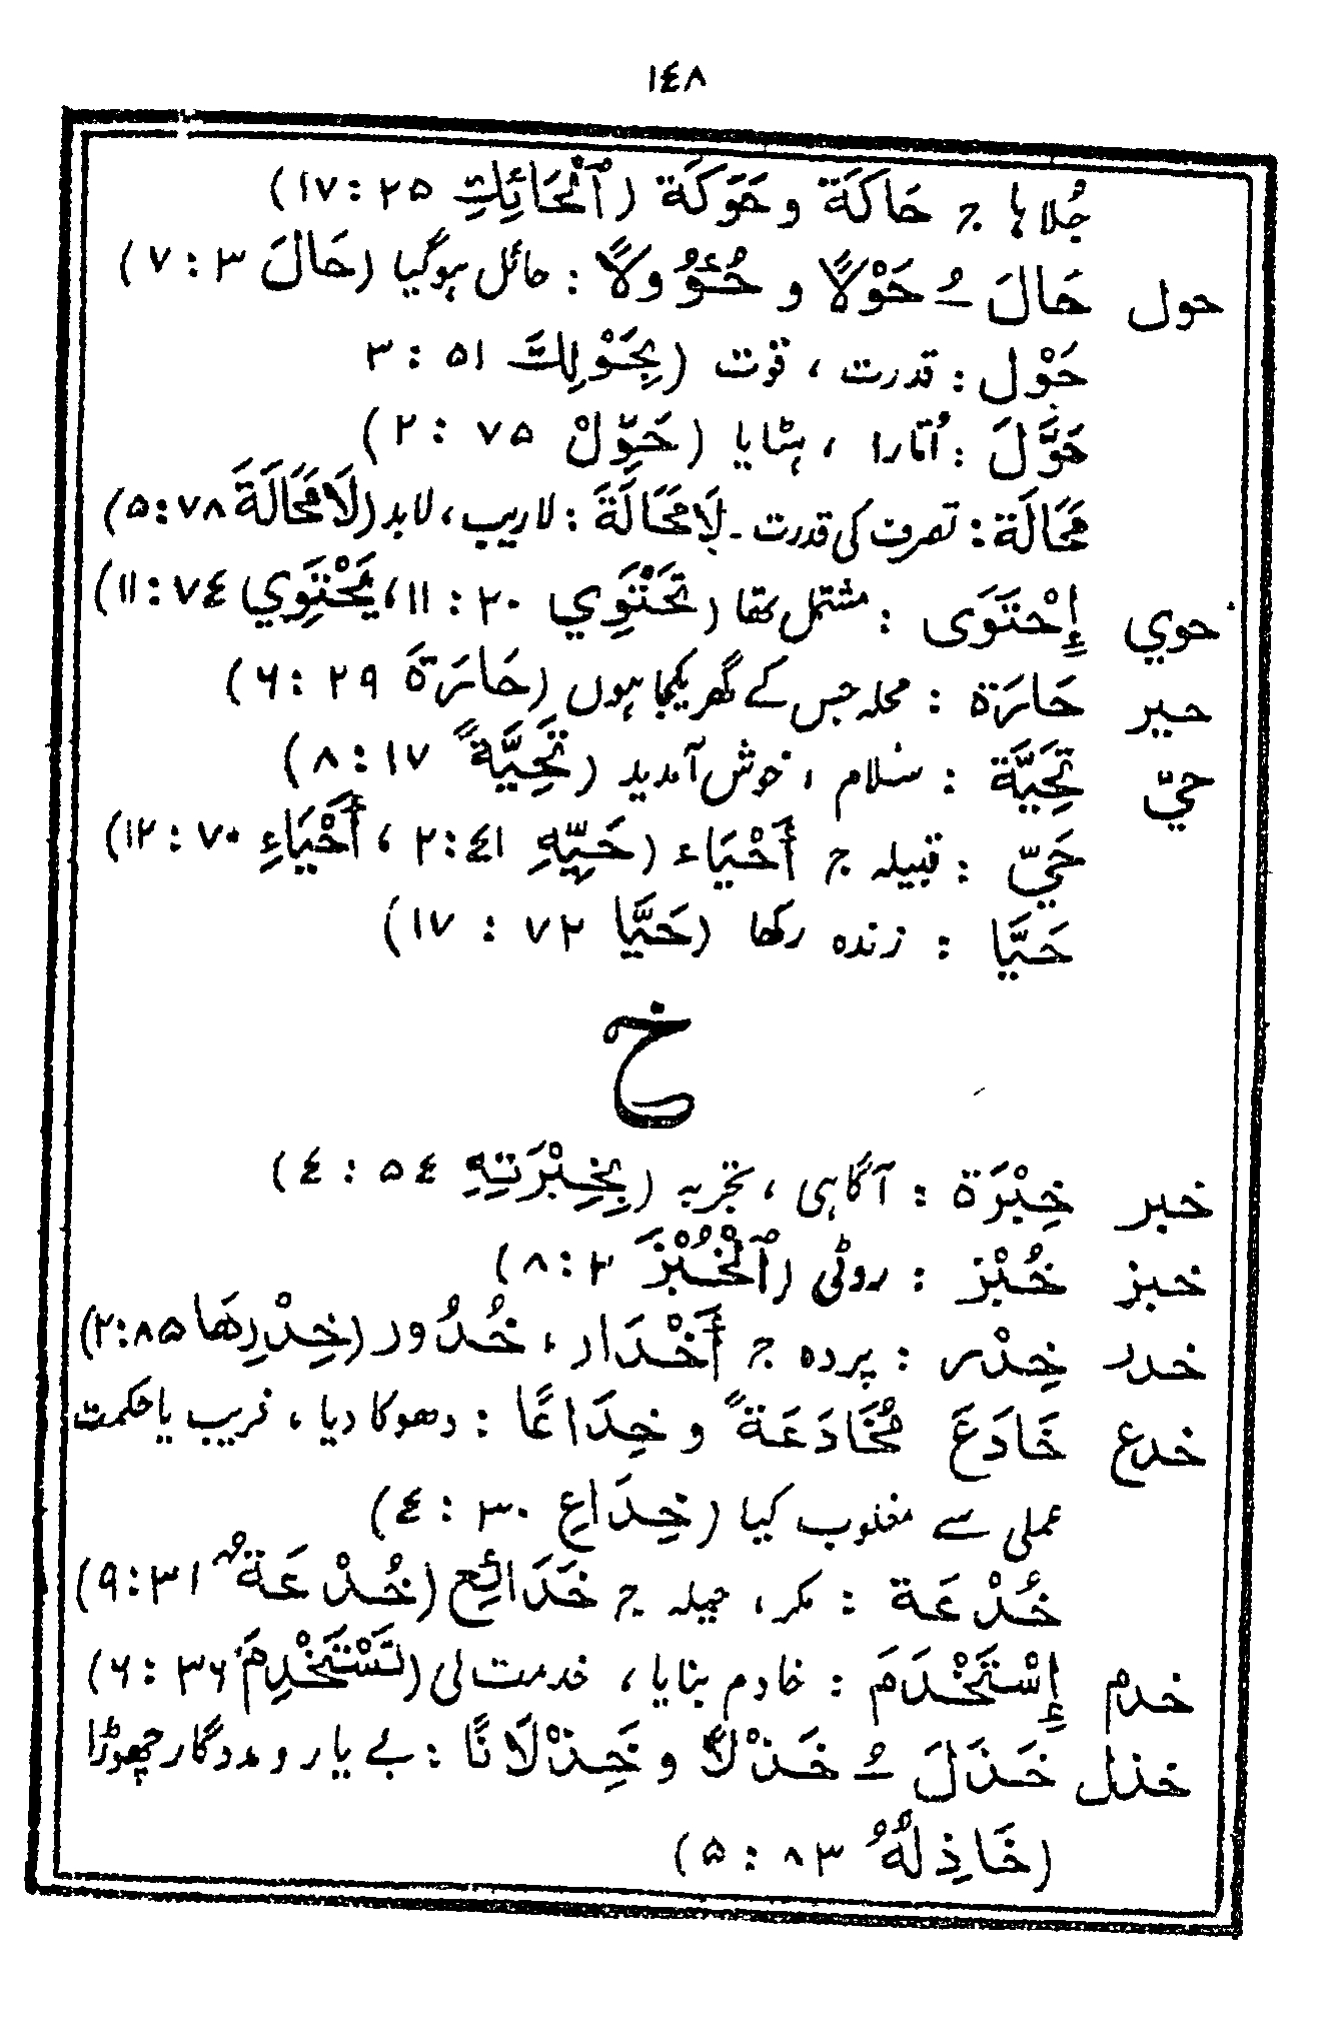 ١٤٨
جُلاہا ج حَاكَة و حَوَكَة (ٱلْحَائِكِ ٢٥ : ١٧)
حول حَالَ ـُ حَوْلاً و حُؤُولاً : حائل ہوگیا (حَالَ ٣ : ٧)
حَوْل : قدرت ، قوت (بِحَوْلِكَ ٥١ : ٣
حَوَّلَ : اُتارا ، ہٹایا (حَوِّلْ ٧٥ : ٢)
مَحَالَة : تصرف کی قدرت ـ لَامَحَالَةَ : لاریب ، لابد (لَامَحَالَةَ ٧٨ : ٥)
حوي إِحْتَوَى : مشتمل تھا (تَحْتَوِي ٢٠ : ١١ ، يَحْتَوِي ٧٤ : ١١)
حير حَارَة : محلہ جس کے گھر یکجا ہوں (حَارَةَ ٢٩ : ٦)
حيّ تَحِيَّة : سلام ، خوش آمدید (تَحِيَّةً ١٧ : ٨)
حَيّ : قبیلہ ج أَحْيَاء (حَيِّهِ ٤١ : ٢ ، أَحْيَاءِ ٧٠ : ١٢)
حَيَّا : زندہ رکھا (حَيَّا ٧٢ : ١٧)
خ
خبر خِبْرَة : آگاہی ، تجربہ (بِخِبْرَتِهِ ٥٤ : ٤)
خبز خُبْز : روٹی (ٱلْخُبْزَ ٣ : ٨)
خدر خِدْر : پردہ ج أَخْدَار ، خُدُور (خِدْرِهَا ٨٥ : ٢)
خدع خَادَعَ مُخَادَعَةً و خِدَاعًا : دھوکا دیا ، فریب یا حکمت
عملی سے مغلوب کیا (خِدَاعِ ٣٠ : ٤)
خُدْعَة : مکر ، حیلہ ج خَدَائِع (خُدْعَةٌ ٣١ : ٩)
خدم إِسْتَخْدَمَ : خادم بنایا ، خدمت لی (تَسْتَخْدِمَ ٣٦ : ٦)
خذل خَذَلَ ـُ خَذْلاً و خِذْلَانًا : بے یار و مددگار چھوڑا
(خَاذِلُهُ ٨٣ : ٥)